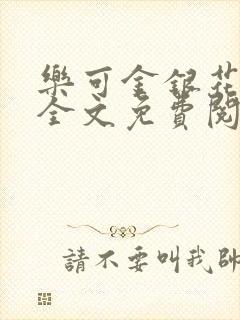 樂可金銀花
全文免費閱
請不要叫我帥